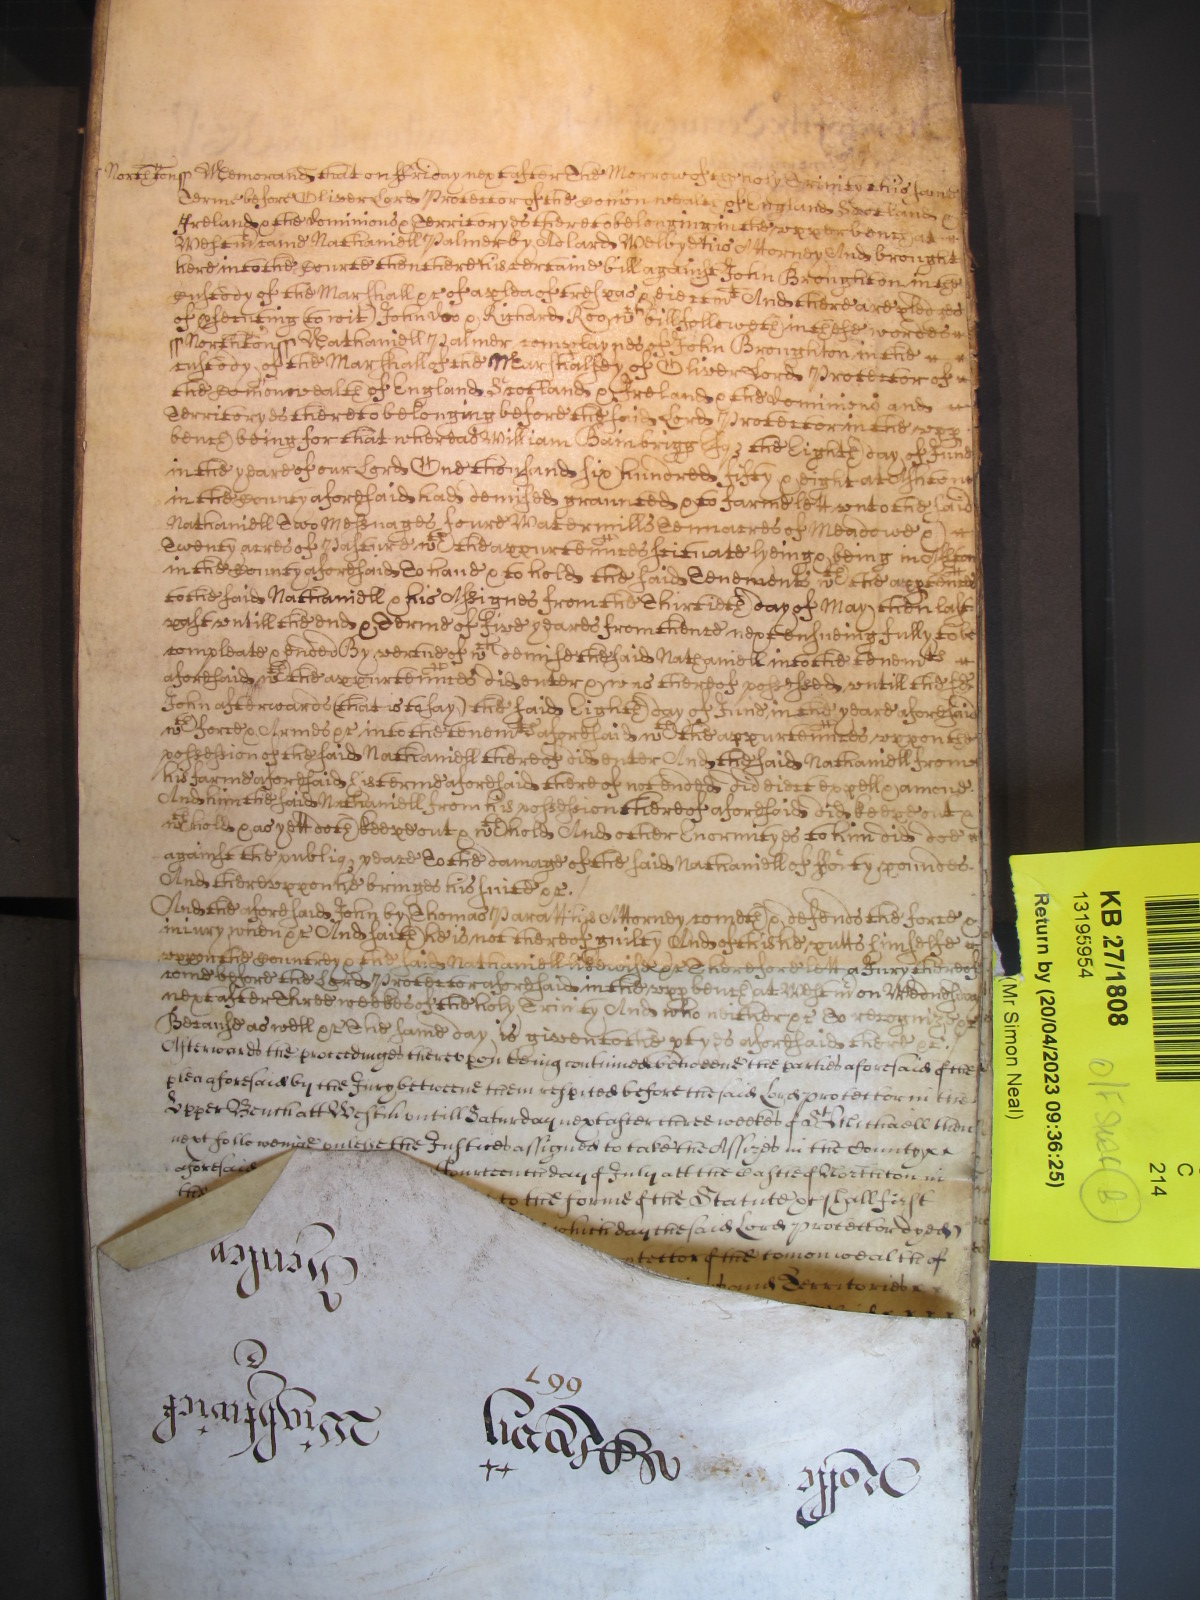 Northtonss Memorand that on Friday next after the Morrow of the holy Trinity this same
Terme before Oliver Lord Protector of the Comon wealth of England Scotland &
Ireland & the dominions & Territoryes thereto belonging in the upper bench at
Westm came Nathaniell Palmer by Adlard Welbye his Attorney And brought
here into the Courte then there his certaine bill against John Broughton in the
custody of the Marshall &c of a plea of trespas & eiectmt And there are pledges
of p'secuting to wit John Doo & Richard Roo wch bill followeth in these wordes
ss Northtonss Nathaniell Palmer complaynes of John Broughton in the
custody of the Marshall of the Marshalsey of Oliver Lord Protector of
the Comonwealth of England Scotland & Ireland & the dominions and
Territoryes thereto belonging before the said Lord Protector in the upp
bench being for that whereas William Bainbrigg Esqz the Eighth day of June
in the yeare of our Lord One thousand six hundred fifty & eight at
in the County aforesaid had demised graunted & to farme lett unto the said
Nathaniell Two Messuages foure Watermills Tenn acres of Meadowe &
Twenty acres of Pasture wth the appurtenncs scituate lyeing & being in
in the County aforesaid To have & to hold the said Tenements wth the appurtenncs
to the said Nathaniell & his Assignes from the Thirtieth day of May then last
past untill the end & Terme of five yeares from thence next ensueing fully to be
compleate & ended By vertue of wch demise the said Nathaniell into the tenemts
aforesaid wth the appurtenncs did enter & was thereof possessed untill the sd
John afterwards (that is to say) the said Eighth day of June in the yeare aforesaid
wth force & Armes &c into the tenemts aforesaid wth the appurtenncs uppon the
possession of the said Nathaniell thereof did enter And the said Nathaniell from
his farme aforesaid his terme aforesaid thereof not ended did eiect expell & amove
And him the said Nathaniell from his possession thereof aforesaid did keepe out &
wthhold & as yett doth keepe out & wthhold And other Enormityes to him did doe
against the publiqz peace To the damage of the said Nathaniell of forty poundes
And thereuppon he bringes his suite &c.
And the aforesaid John by Thomas Paratt his Attorney cometh & defends the force &
iniury when &c And saith he is not thereof guilty And of this he putts himselfe
uppon the Countrey & the said Nathaniell likewise &c Therefore lett a Jury thereof
come before the Lord Protector aforesaid in the upp bench at Westm on Wednesday
next after Three weekes of the holy Trinity And who neither &c To recognize &c
Because as well &c The same day is given to the ptyes aforesaid there &c.
Afterwards the proceedinges thereupon being continued betweene the parties aforesaid of the
plea aforesaid by the Jury betweene them respited before the said Lord protector in the
Upper Bench att Westm untill Saturday next after three weekes of St Michaell then
next followeinge unless the Justices assigned to take the Assizes in the County
aforesaid Fourteenth day of July att the Castle of Northton in
the to the forme of the Statute &c shall first
which day the said Lord protector dyed
otector of the comonwealth of
and Territories
KB 27/1808
131959954
Return by (20/04/2023 09:36:25)
(Mr Simon Neal)
C
214
667
Rolle